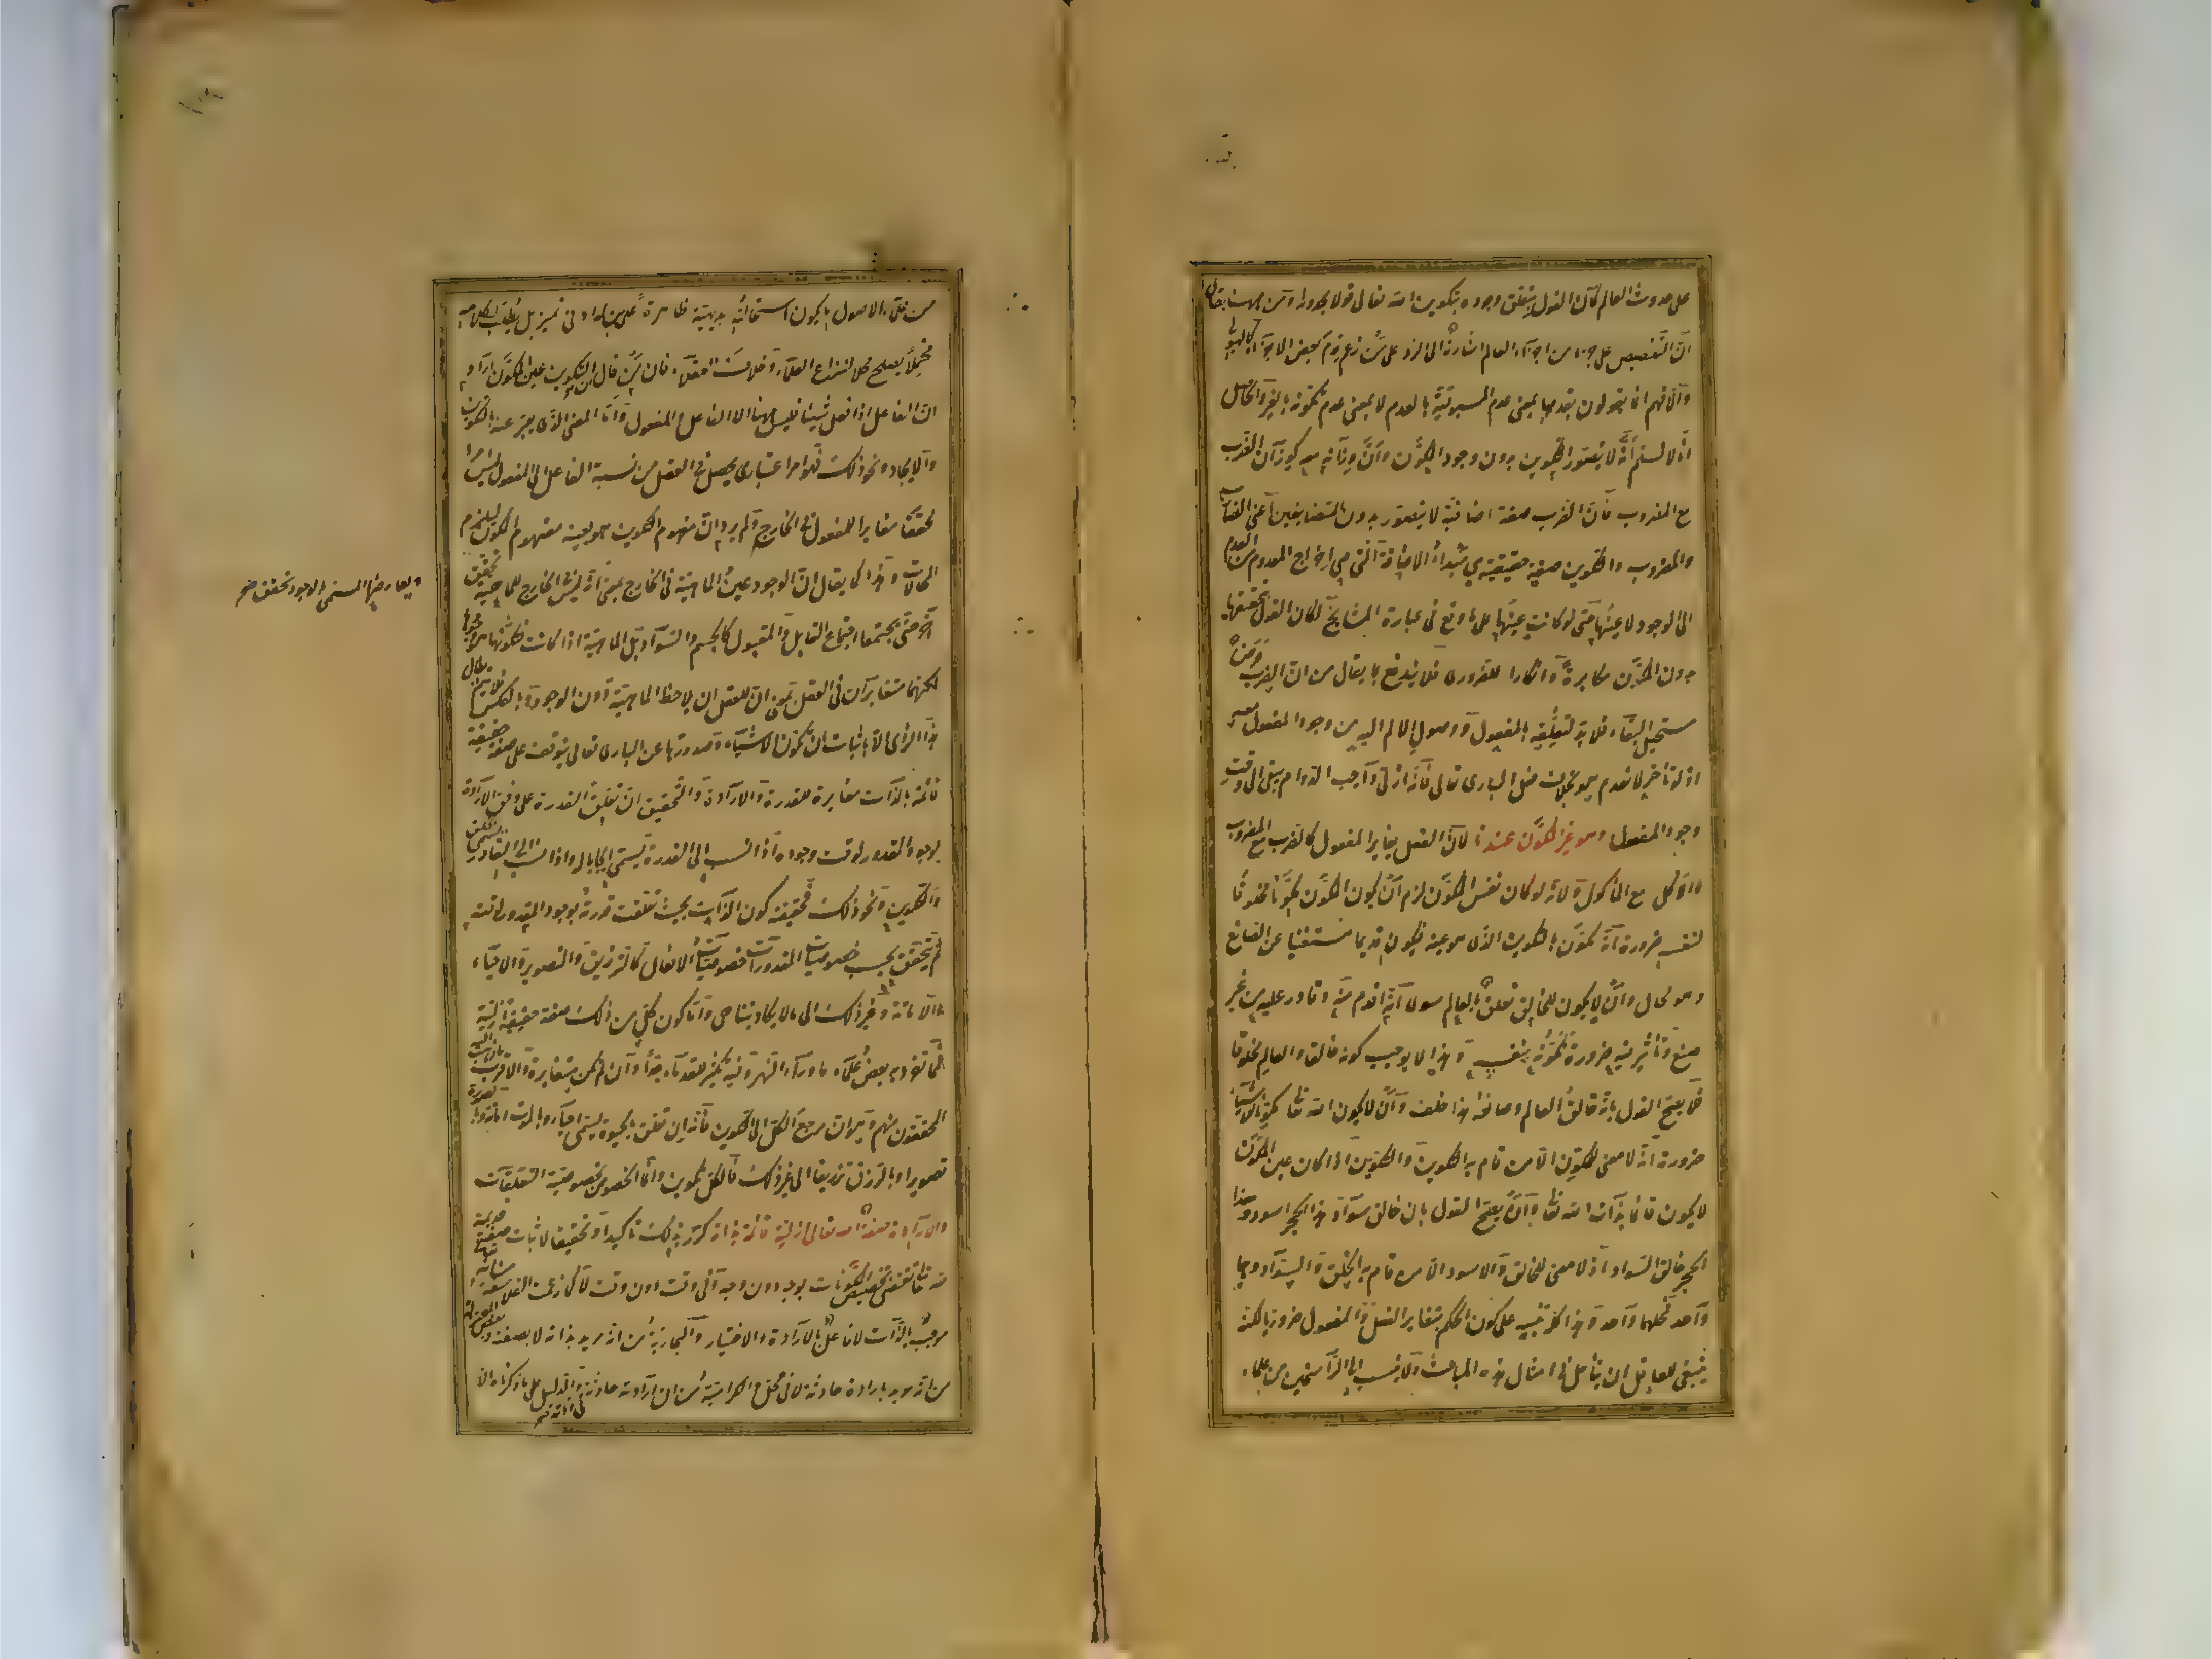 على حدوث العالم كان القول بتعلق وجوده بتكوين الله تعالى قولا بحدوثه ومن ههنا يقال
ان التنصيص على كل جزء من اجزاء العالم اشارة الى الرد على من زعم قدم بعض الاجزاء كالهيولى
والا فهم انما يقولون بقدمها بمعنى عدم المسبوقية بالعدم لا بمعنى عدم تكونه بالغير والحاصل
انا لا نسلم انه لا يتصور التكوين بدون وجود المكون وان وزانه معه كوزان الضرب
مع المضروب فان الضرب صفة اضافية لا يتصور بدون المتضايفين اعنى الضارب
والمضروب والتكوين صفة حقيقية هي مبدأ الاضافة التي هي اخراج المعدوم من العدم
الى الوجود لا عينها حتى لو كانت عينها على ما وقع في عبارة المشايخ لكان القول بتحققها
بدون المكون مكابرة وانكارا للضروري فلا يندفع بما يقال من ان الضرب عرض
مستحيل البقاء فلا بد لتعلقه بالمفعول ووصول الالم اليه من وجود المفعول معه
اذ لو تأخر لانعدم هو بخلاف فعل الباري تعالى فانه ازلي واجب الدوام يبقى الى وقت
وجود المفعول وهو غير المكون عندنا لان الفعل يغاير المفعول كالضرب مع المضروب
والاكل مع المأكول ولانه لو كان نفس المكون لزم ان يكون المكون مكونا مخلوقا
لنفسه ضرورة انه مكون بالتكوين الذي هو عينه فيكون قديما مستغنيا عن الصانع
وهو محال وان لا يكون للخالق تعلق بالعالم سوى انه اقدم منه وقادر عليه من غير
صنع وتأثير فيه ضرورة تكونه بنفسه وهذا لا يوجب كونه خالقا والعالم مخلوقا
فلا يصح القول بانه خالق العالم وصانعه هذا خلف وان لا يكون الله تعالى مكونا للاشياء
ضرورة انه لا معنى للمكون الا من قام به التكوين والتكوين اذا كان عين المكون
لا يكون قائما بذات الله تعالى وان يصح القول بان خالق سواد هذا الحجر اسود وهذا
الحجر خالق السواد اذ لا معنى للخالق والاسود الا من قام به الخلق والسواد وهما
واحد فمحلهما واحد وهذا كله تنبيه على كون الحكم بتغاير الفعل والمفعول ضروريا لكنه
ينبغي للعاقل ان يتأمل في امثال هذه المباحث ولا ينسب الى الراسخين من علماء
من علماء الاصول ما يكون استحالته بديهية ظاهرة على من له ادنى تمييز بل يطلب لكلامهم
محملا يصلح محلا لنزاع العلماء وخلاف العقلاء فان من قال ان التكوين عين المكون اراد
ان الفاعل اذا فعل شيئا فليس ههنا الا الفاعل والمفعول واما المعنى الذي يعبر عنه بالتكوين
والايجاد ونحو ذلك فهو امر اعتباري يحصل في العقل من نسبة الفاعل الى المفعول ليس امرا
محققا مغايرا للمفعول في الخارج ولم يرد ان مفهوم التكوين هو بعينه مفهوم المكون ليلزم
المحالات وهذا كما يقال ان الوجود عين الماهية في الخارج بمعنى انه ليس في الخارج للماهية تحقق
ويعارضها المسمى بالوجود تحقق صح
آخر حتى يجتمعا اجتماع القابل والمقبول كالجسم والسواد بل الماهية اذا كانت فكونها هو وجودها
لكنهما متغايران في العقل بمعنى ان للعقل ان يلاحظ الماهية دون الوجود وبالعكس فلا يتم ابطال
هذا الرأي الا باثبات ان تكون الاشياء وصدورها عن الباري تعالى يتوقف على صفة حقيقية
قائمة بالذات مغايرة للقدرة والارادة والتحقيق ان تعلق القدرة على وفق الارادة
بوجود المقدور لوقت وجوده اذا نسب الى القدرة يسمى ايجابا له واذا نسب الى القادر يسمى الخلق
والتكوين ونحو ذلك فحقيقته كون الذات بحيث تعلقت قدرته بوجود المقدور لوقته
ثم يتحقق بحسب خصوصيات المقدورات خصوصيات الافعال كالترزيق والتصوير والاحياء
والاماتة وغير ذلك الى ما لا يكاد يتناهى واما كون كل من ذلك صفة حقيقية ازلية
فمما تفرد به بعض علماء ما وراء النهر وفيه تكثير للقدماء جدا وان لم تكن متغايرة والاقرب ما ذهب اليه
المحققون منهم وهو ان مرجع الكل الى التكوين فانه ان تعلق بالحيوة يسمى احياء وبالموت اماتة وبالصورة
تصويرا وبالرزق ترزيقا الى غير ذلك فالكل تكوين وانما الخصوص بخصوصية التعلقات
والارادة صفة الله تعالى ازلية قائمة بذاته كرر ذلك تأكيدا وتحقيقا لاثبات صفة قديمة
لله تعالى تقتضي تخصيص المكونات بوجه دون وجه وفي وقت دون وقت لا كما زعمت الفلاسفة من انه تعالى
موجب بالذات لا فاعل بالارادة والاختيار والنجارية من انه مريد بذاته لا بصفته وبعض المعتزلة
من انه مريد بارادة حادثة لا في محل والكرامية من ان ارادته حادثة والدليل على ما ذكرنا الا
في ذاته صح